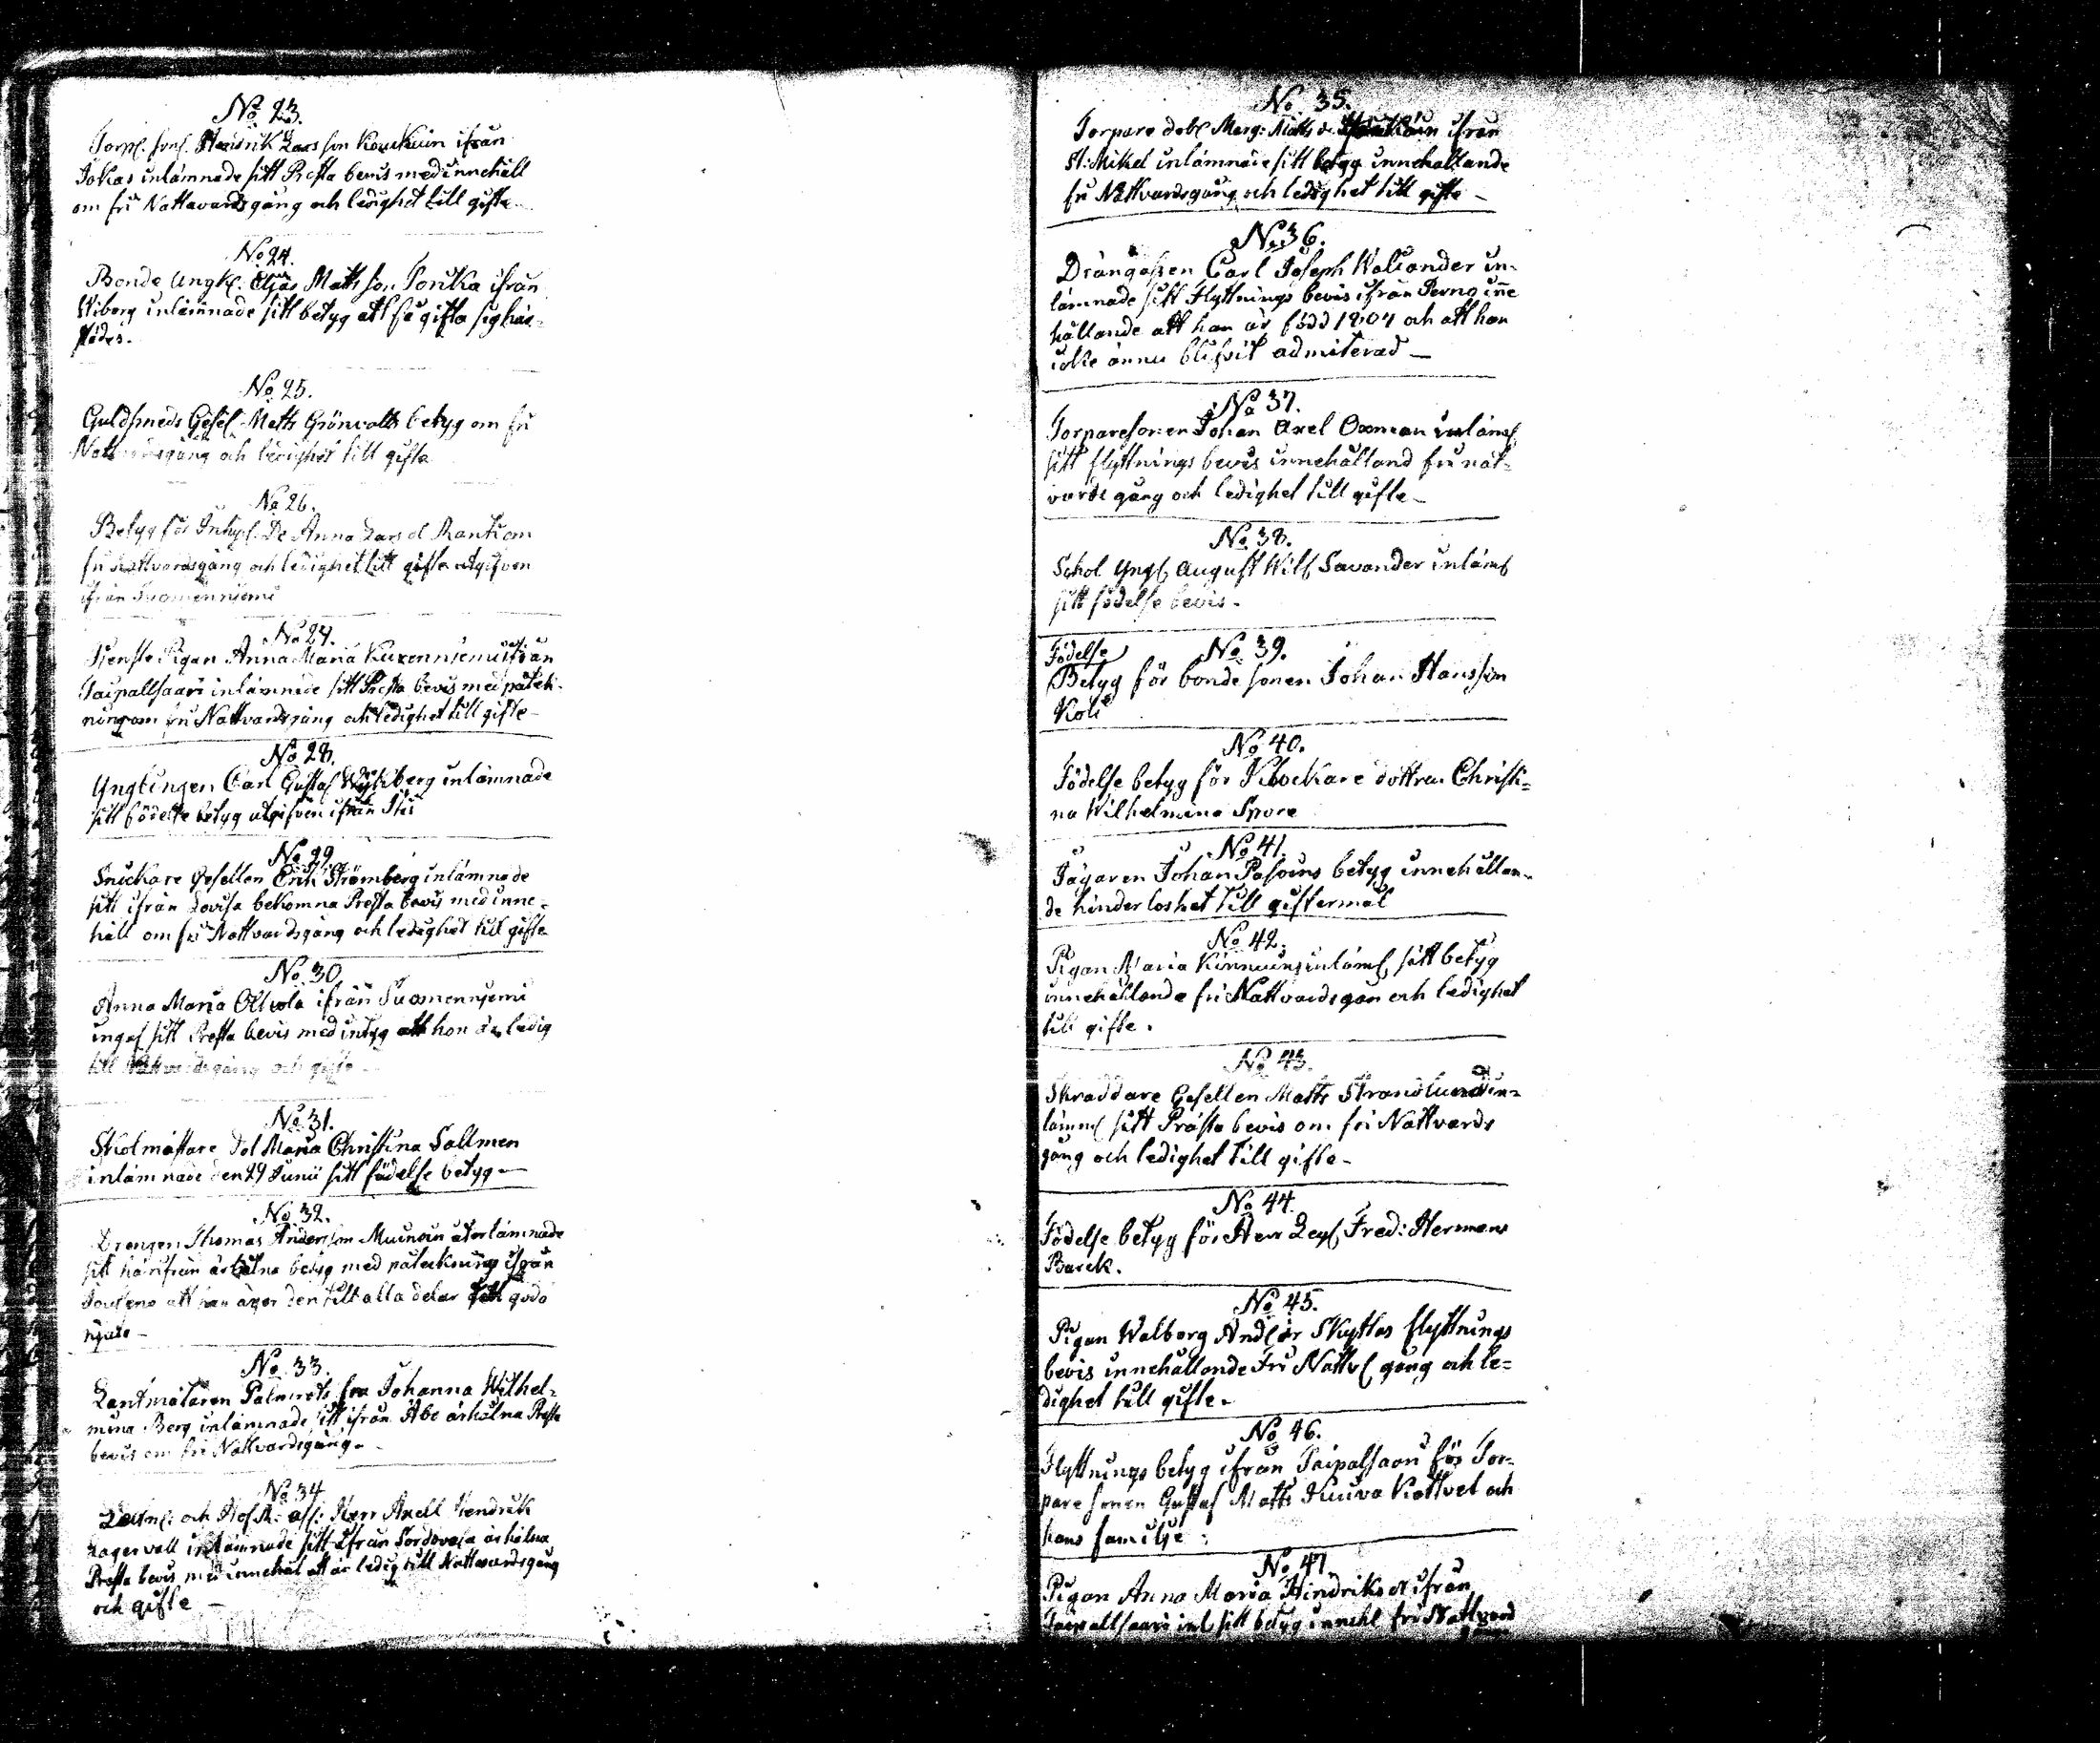 No 23.
Torp. son. Hendrik Larsson Koukuin ifrån
Jokas inlämnade sitt Presta bevis med innehåll
om fri Nattavardsgång och ledighet till gifte
No 24.
Bonde Ungk. Elias Matts son Ponka ifrån
Wiborg inlämnade sitt betyg att få gifta sig här-
städes.
No 25.
Guldsmeds Gesel Matts Grönvalls betyg om fri
Nattvardsgång och ledighet till gifte
No 26.
Betyg för Inhys. De Anna Lars d Ranki om
fri Nattvardsgång och ledighet till gifte utgifven
ifrån Suomenniemi
No 27.
Tjenste Pigan Anna Maria Kurenniemi ifrån
Taipallsaari inlämnade sitt Presta bevis med påtek-
ning om fri Nattvardsgång och ledighet till gifte
No 28.
Ynglingen Carl Gustaf Wykberg inlämnade
sitt födelse betyg utgifven ifrån Itis
No 29.
Snickare Gesellen Erik Strömberg inlämnade
sitt ifrån Lovisa bekomna Presta bevis med inne-
håll om fri Nattvardsgång och ledighet till gifte
No 30.
Anna Maria Ollvola ifrån Suomenniemi
ingaf sitt Presta bevis med intyg att hon är ledig
till Nattvardsgång och gifte
No 31.
Skolmästare Dot Maria Christina Sallmen
inlämnade den 29 Junii sitt födelse betyg —
No 32.
Drengen Thomas Andersson Muinoin återlämnade
sitt härifrån ärhålna betyg med påteckning ifrån
Joutseno att han äger den till alla delar till godo
njuta —
No 33.
Lantmätaren Palmrots fru Johanna Wilhel-
mina Berg inlämnade sitt ifrån Åbo ärhålna Presta
bevis om fri Nattvardsgång.
No 34
och Hof R: ass: Herr Axell Hendrik
Lagervall inlämnade sitt ifrån Sordavala ärhålna
Presta bevis med innehål att är ledig till Nattvardsgång
och gifte —
No 35.
Torpare dot. Marg: Matts d. ifrån
St: Mikel inlämnade sitt betyg innehållande
fri Nattvardsgång och ledighet till gifte —
No 36.
Drängossen Carl Joseph Walsander in-
lämnade sitt Flyttnings bevis ifrån Perno inne
hållande att han är född 1804 och att han
icke ännu blifvit admiterad —
No 37.
Torparesonen Johan Axel Oxman inläm.
sitt flyttnings bevis innehålland fri nat-
vards gång och ledighet till gifte —
No 38.
Schol Yngl. August Wilh Savander inläm.
sitt födelse bevis.
No 39.
Födelse
Betyg för bonde sonen Johan Hansson
Koli
No 40.
Födelse betyg för Klockare dottren Christi-
na Wilhelmina Spore
No 41.
Jägaren Johan Pasoins betyg innehållan-
de hinderloshet till giftermål
No 42.
Pigan Maria Kinnuins inläm. sitt betyg
innehållande fri Nattvardsgån och ledighet
till gifte.
No 43.
Skraddare Gesellen Matts Strandlund in-
lämn. sitt Prästa bevis om fri Nattvards
gång och ledighet till gifte —
No 44.
Födelse betyg för Herr Leg. Fred: Hermans
Barck.
No 45.
Pigan Walborg And. dr Skyttas flyttnings
bevis innehållande Fri Nattv. gång och le-
dighet till gifte.
No 46.
Flyttnings betyg ifrån Taipalsaari för Tor-
pare sonen Gustaf Matts Kuiva Kattvet och
hans familje
No 47
Pigan Anna Maria Hindriks dr ifrån
Taipallsaari inl. sitt betyg innehl fri Nattvard